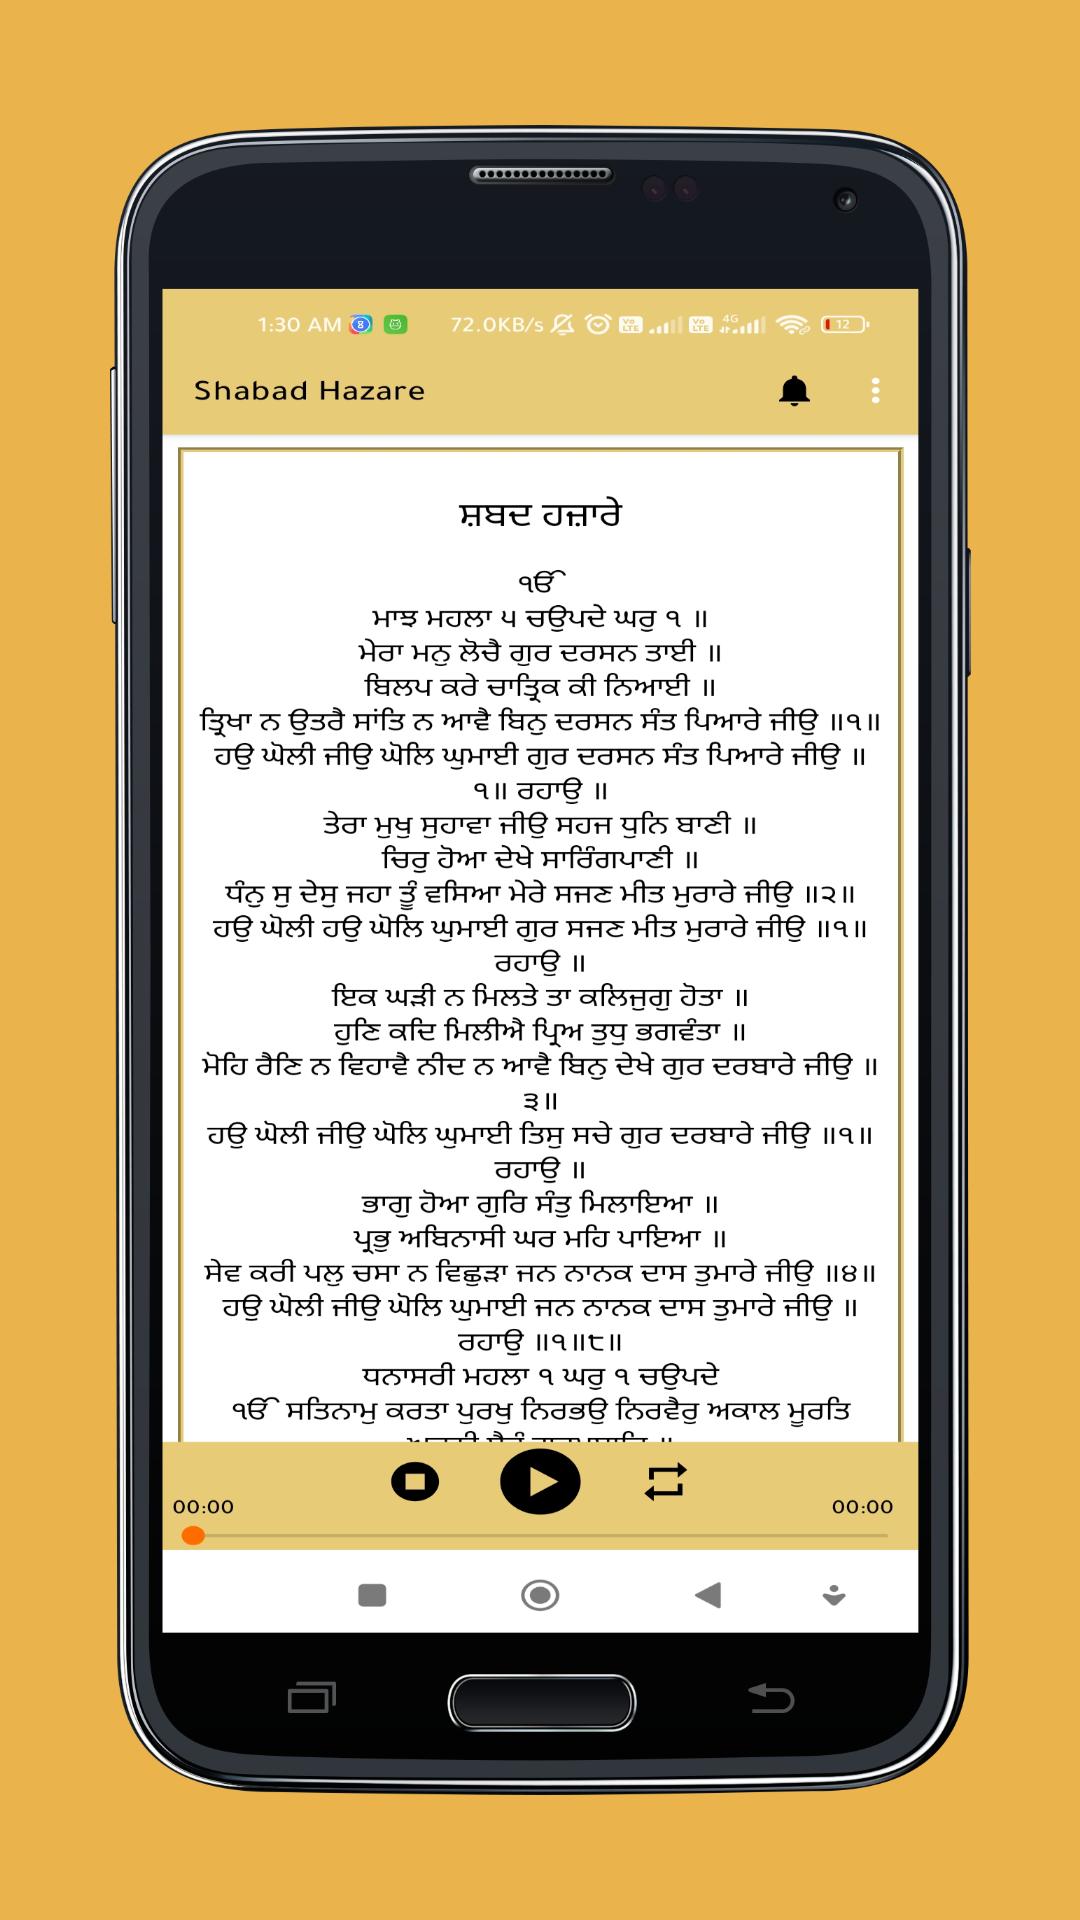 1:30 AM 72.0KB/s Vo LTE Vo LTE 4G 12
Shabad Hazare
ਸ਼ਬਦ ਹਜ਼ਾਰੇ
ੴ
ਮਾਝ ਮਹਲਾ ੫ ਚਉਪਦੇ ਘਰੁ ੧ ॥
ਮੇਰਾ ਮਨੁ ਲੋਚੈ ਗੁਰ ਦਰਸਨ ਤਾਈ ॥
ਬਿਲਪ ਕਰੇ ਚਾਤ੍ਰਿਕ ਕੀ ਨਿਆਈ ॥
ਤ੍ਰਿਖਾ ਨ ਉਤਰੈ ਸਾਂਤਿ ਨ ਆਵੈ ਬਿਨੁ ਦਰਸਨ ਸੰਤ ਪਿਆਰੇ ਜੀਉ ॥੧॥
ਹਉ ਘੋਲੀ ਜੀਉ ਘੋਲਿ ਘੁਮਾਈ ਗੁਰ ਦਰਸਨ ਸੰਤ ਪਿਆਰੇ ਜੀਉ ॥
੧॥ ਰਹਾਉ ॥
ਤੇਰਾ ਮੁਖੁ ਸੁਹਾਵਾ ਜੀਉ ਸਹਜ ਧੁਨਿ ਬਾਣੀ ॥
ਚਿਰੁ ਹੋਆ ਦੇਖੇ ਸਾਰਿੰਗਪਾਣੀ ॥
ਧੰਨੁ ਸੁ ਦੇਸੁ ਜਹਾ ਤੂੰ ਵਸਿਆ ਮੇਰੇ ਸਜਣ ਮੀਤ ਮੁਰਾਰੇ ਜੀਉ ॥੨॥
ਹਉ ਘੋਲੀ ਹਉ ਘੋਲਿ ਘੁਮਾਈ ਗੁਰ ਸਜਣ ਮੀਤ ਮੁਰਾਰੇ ਜੀਉ ॥੧॥
ਰਹਾਉ ॥
ਇਕ ਘੜੀ ਨ ਮਿਲਤੇ ਤਾ ਕਲਿਜੁਗੁ ਹੋਤਾ ॥
ਹੁਣਿ ਕਦਿ ਮਿਲੀਐ ਪ੍ਰਿਅ ਤੁਧੁ ਭਗਵੰਤਾ ॥
ਮੋਹਿ ਰੈਣਿ ਨ ਵਿਹਾਵੈ ਨੀਦ ਨ ਆਵੈ ਬਿਨੁ ਦੇਖੇ ਗੁਰ ਦਰਬਾਰੇ ਜੀਉ ॥
੩॥
ਹਉ ਘੋਲੀ ਜੀਉ ਘੋਲਿ ਘੁਮਾਈ ਤਿਸੁ ਸਚੇ ਗੁਰ ਦਰਬਾਰੇ ਜੀਉ ॥੧॥
ਰਹਾਉ ॥
ਭਾਗੁ ਹੋਆ ਗੁਰਿ ਸੰਤੁ ਮਿਲਾਇਆ ॥
ਪ੍ਰਭੁ ਅਬਿਨਾਸੀ ਘਰ ਮਹਿ ਪਾਇਆ ॥
ਸੇਵ ਕਰੀ ਪਲੁ ਚਸਾ ਨ ਵਿਛੁੜਾ ਜਨ ਨਾਨਕ ਦਾਸ ਤੁਮਾਰੇ ਜੀਉ ॥੪॥
ਹਉ ਘੋਲੀ ਜੀਉ ਘੋਲਿ ਘੁਮਾਈ ਜਨ ਨਾਨਕ ਦਾਸ ਤੁਮਾਰੇ ਜੀਉ ॥
ਰਹਾਉ ॥੧॥੮॥
ਧਨਾਸਰੀ ਮਹਲਾ ੧ ਘਰੁ ੧ ਚਉਪਦੇ
ੴ ਸਤਿਨਾਮੁ ਕਰਤਾ ਪੁਰਖੁ ਨਿਰਭਉ ਨਿਰਵੈਰੁ ਅਕਾਲ ਮੂਰਤਿ
00:00 00:00